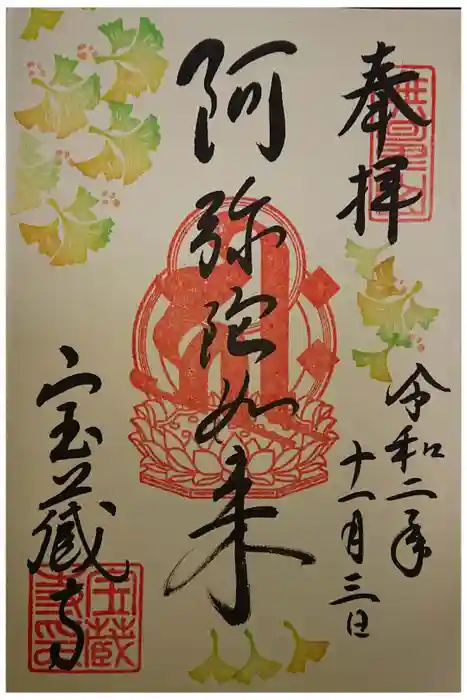 奉拝
令和二年
十一月三日
阿弥陀如来
宝蔵寺